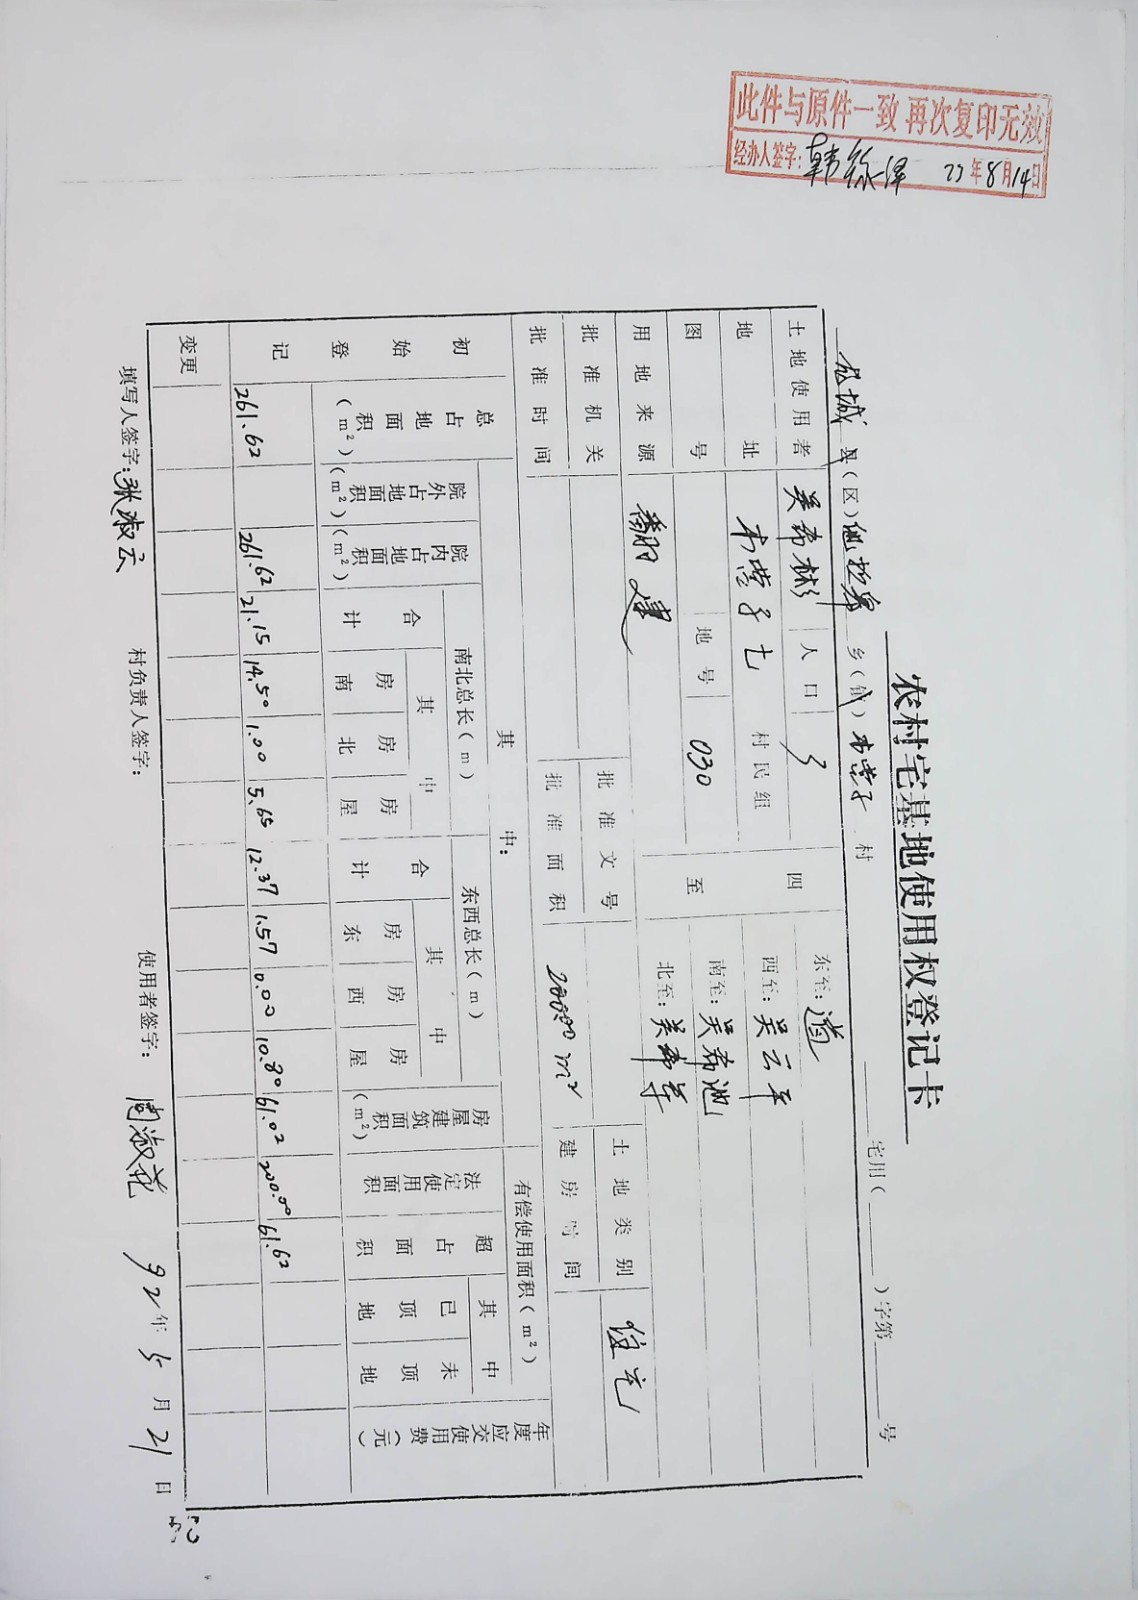 此件与原件一致 再次复印无效
经办人签字: 韩 23年8月14日
农村宅基地使用权登记卡
宅用( )字第 号
城 县(区) 乡(镇) 木营子 村
土地使用者 吴希彬 人口 3 四至 东至: 道
地址 木营子七 村民组 西至: 吴云平
图号 地号 030 南至: 吴希池
北至: 吴希军
用地来源 翻建
批准机关 批准文号 土地类别 住宅
批准时间 批准面积 200.00 m² 建房时间
初始登记 总占地面积(m²) 其中: 有偿使用面积(m²) 年度应交使用费(元)
院外占地面积(m²) 院内占地面积(m²) 南北总长(m) 东西总长(m) 房屋建筑面积(m²) 法定使用面积 超占面积 其中
合计 其中 合计 其中 已顶地 未顶地
房南 房北 房屋 房东 房西 房屋
261.62 261.62 21.15 14.50 1.00 5.65 12.37 1.57 0.00 10.80 61.02 200.00 61.62
变更
填写人签字: 张淑云 村负责人签字: 使用者签字: 周淑花 92年5月21日